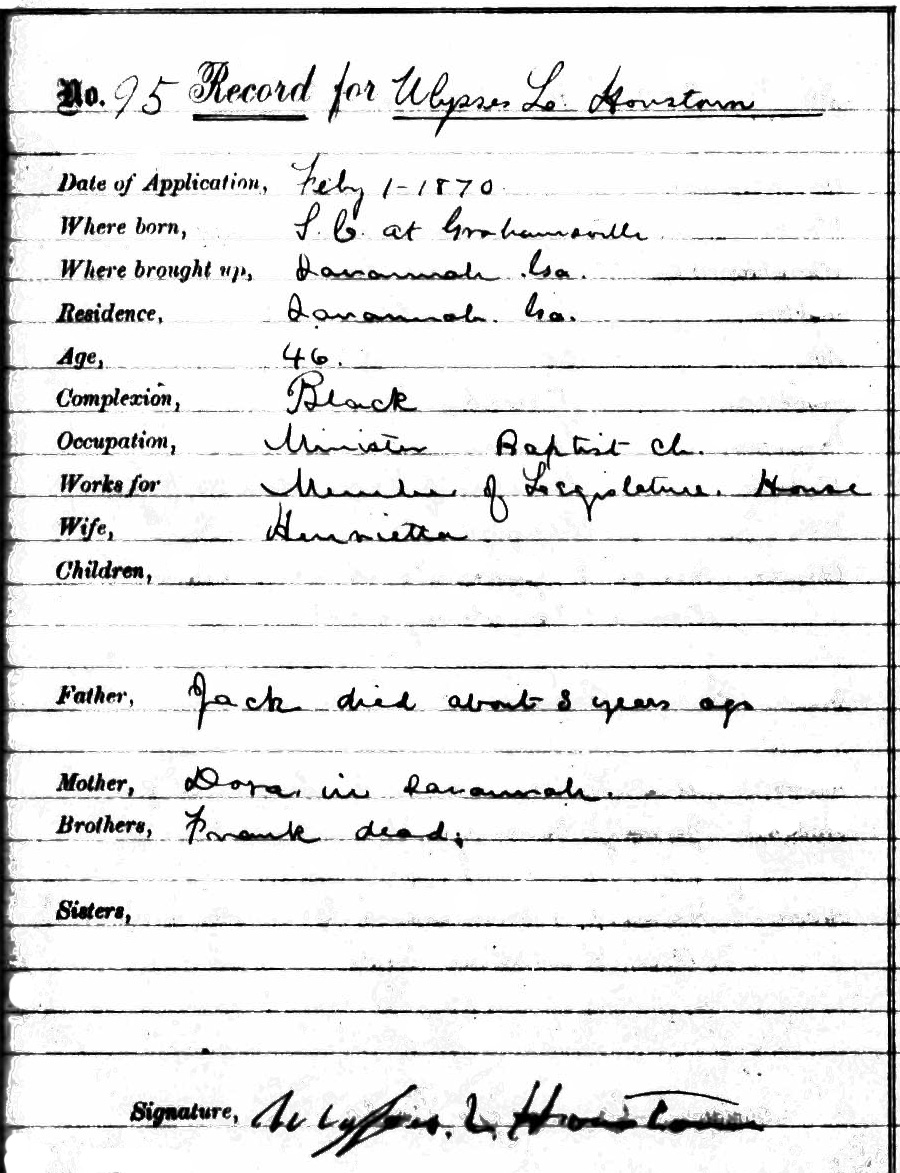 No. 95 Record for Ulysses L. Houstown
Date of Application, Feby 1-1870
Where born, S. C. at Grahamsville
Where brought up, Savannah Ga.
Residence, Savannah. Ga.
Age, 46.
Complexion, Black
Occupation, Minister Baptist Ch.
Works for Member of Legislature. House
Wife, Henrietta
Children,
Father, Jack died about 3 years ago
Mother, Dora, in Savannah.
Brothers, Frank dead.
Sisters,
Signature, Ulysses. L. Houston